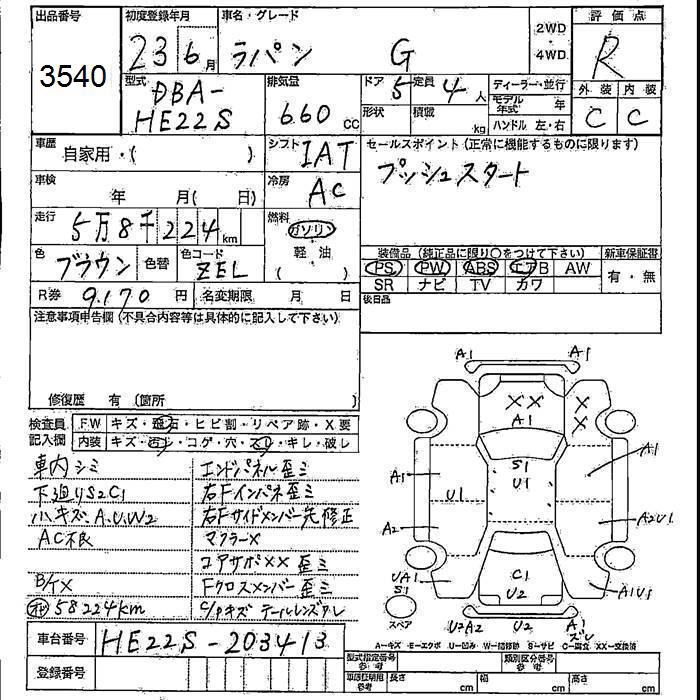 出品番号
3540
初度登録年月
23 6月
車名・グレード
ラパン G
2WD
・
4WD
評価点
R
型式
DBA-
HE22S
排気量
660 cc
ドア 5
定員 4人
形状
積載 kg
ディーラー・並行
モデル年式 年
ハンドル 左・右
外装 内装
C C
車歴
自家用・( )
シフト
IAT
セールスポイント(正常に機能するものに限ります)
プッシュスタート
車検
年 月( 日)
冷房
AC
走行
5万8千224km
燃料
ガソリン
軽油
( )
色
ブラウン
色替
色コード
ZEL
装備品(純正品に限り〇をつけて下さい)
PS PW ABS エアB AW
SR ナビ TV カワ
新車保証書
有・無
R券 9,170円
名変期限 月 日
後日品
注意事項申告欄(不具合内容等は具体的に記入して下さい)
修復歴 有(箇所 )
検査員記入欄
FW キズ・飛石・ヒビ割・リペア跡・X要
内装 キズ・汚レ・コゲ・穴・スレ・キレ・破レ
車内シミ
下廻りS2C1
小キズA.U.W2
AC不良
B/イX
58224km
エンドパネル歪ミ
右Fインパネ歪ミ
右Fサイドメンバー先修正
マフラーX
コアサポXX 歪ミ
Fクロスメンバー歪ミ
テールレンズワレ
A1 A1
XX X
A1
S1
U1
A1
A1
U1
A2
A2U1
UA1
C1
U2
A1U1
S1
スペア
U2A2 U2 A1
A-キズ E-エクボ U-凹み W-補修跡 S-サビ C-腐食 XX-交換済
車台番号
HE22S-203413
登録番号
型式指定番号
参考
類別区分番号
参考
車庫証明用
参考
長さ cm 幅 cm 高さ cm